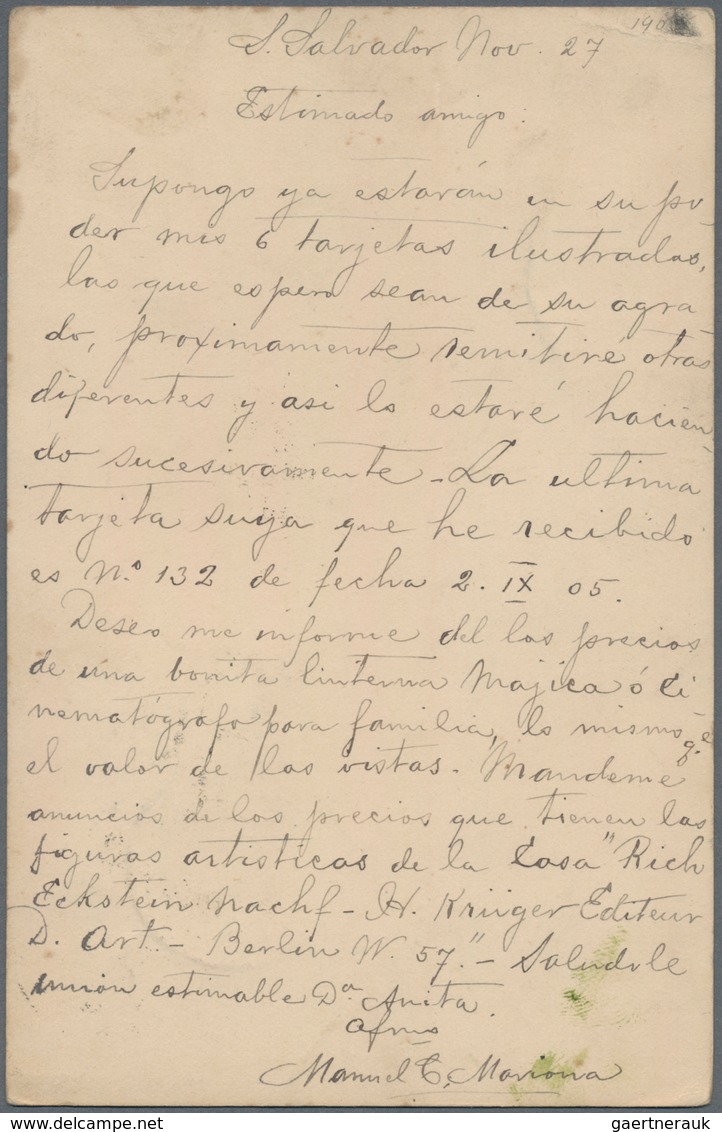 190
S. Salvador Nov. 27
Estimado amigo:
Supongo ya estarán en su po-
der mis 6 tarjetas ilustradas,
las que espero sean de su agra-
do, proximamente remitiré otras
diferentes y asi lo estaré hacien-
do sucesivamente - La ultima
tarjeta suya que he recibido
es N.º 132 de fecha 2. IX 05.
Deseo me informe del los precios
de una bonita linterna Majica ó Ci-
nematógrafo para familia, lo mismo q.e
el valor de las vistas. Mandeme
anuncios de los precios que tienen las
figuras artisticas de la Casa "Rich
Eckstein Nachf - H. Krüger Editeur
D. Art. - Berlin W. 57." - Saludole
unión estimable Da Anita.
Afmo
Manuel C. Mariona
gaertnerauk